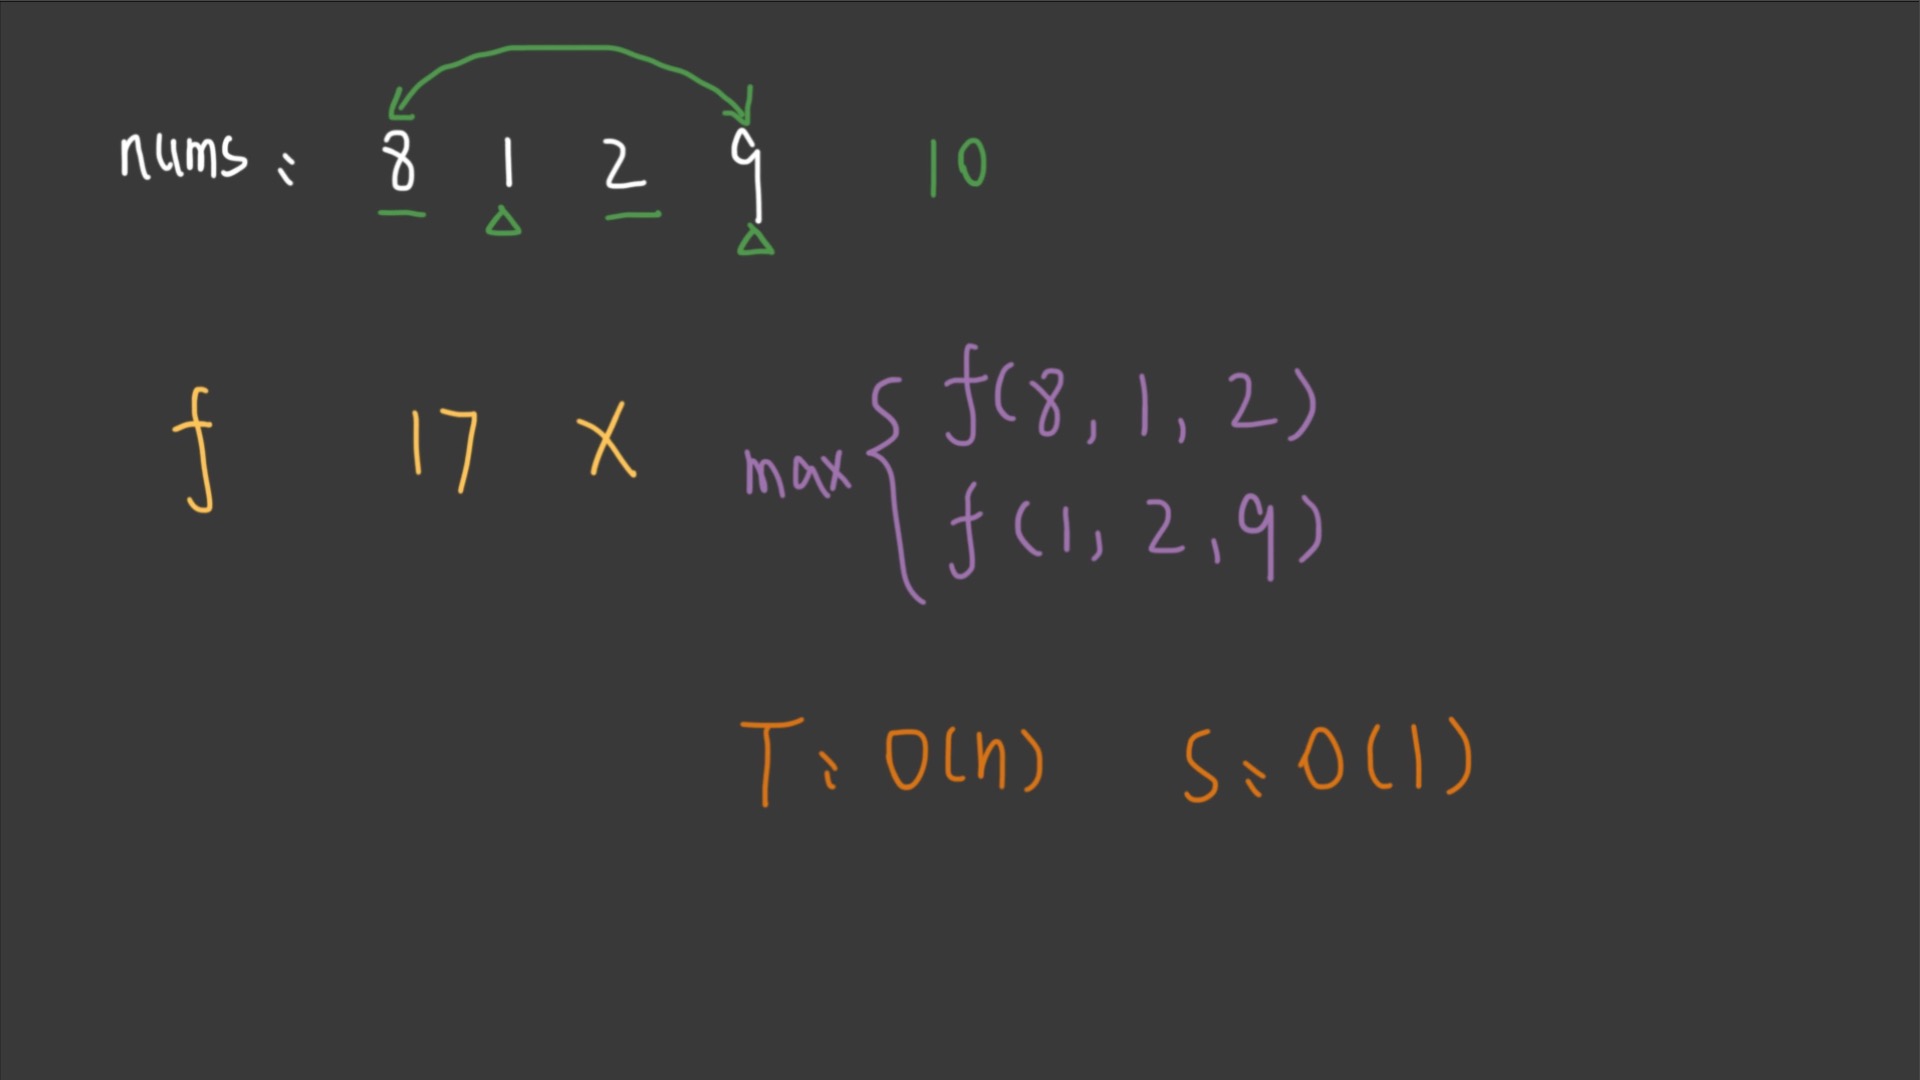 nums: 8 1 2 9 10
f 17 X max { f(8, 1, 2)
f(1, 2, 9)
T: O(n) S: O(1)